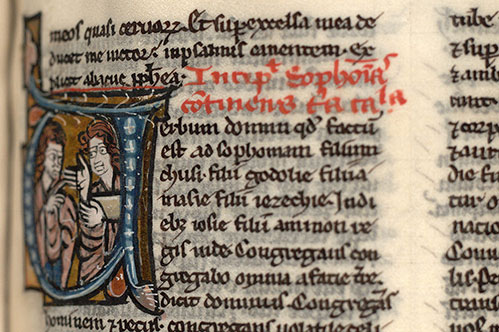 meos quasi ceruorz. Et sup excelsa mea de
ducet me uictor in psalmis canentem. Ex
plicit abacuc ppheta. Incipt Sophonias
continens
Verbum domini qd factum
est ad sophoniam filium
chusi. filii godolie filii a
marie filii iezechie. In di
ebz iosie filii aminon re
gis iude. Congregans con
gregabo omnia a facie tre
dicit dominus. Congregans
hominem 7 pecus. congregans uolatilia celi
tube
7 sup
7 amb
7 cozp
7 au
die fi
rum
nacio
Cong